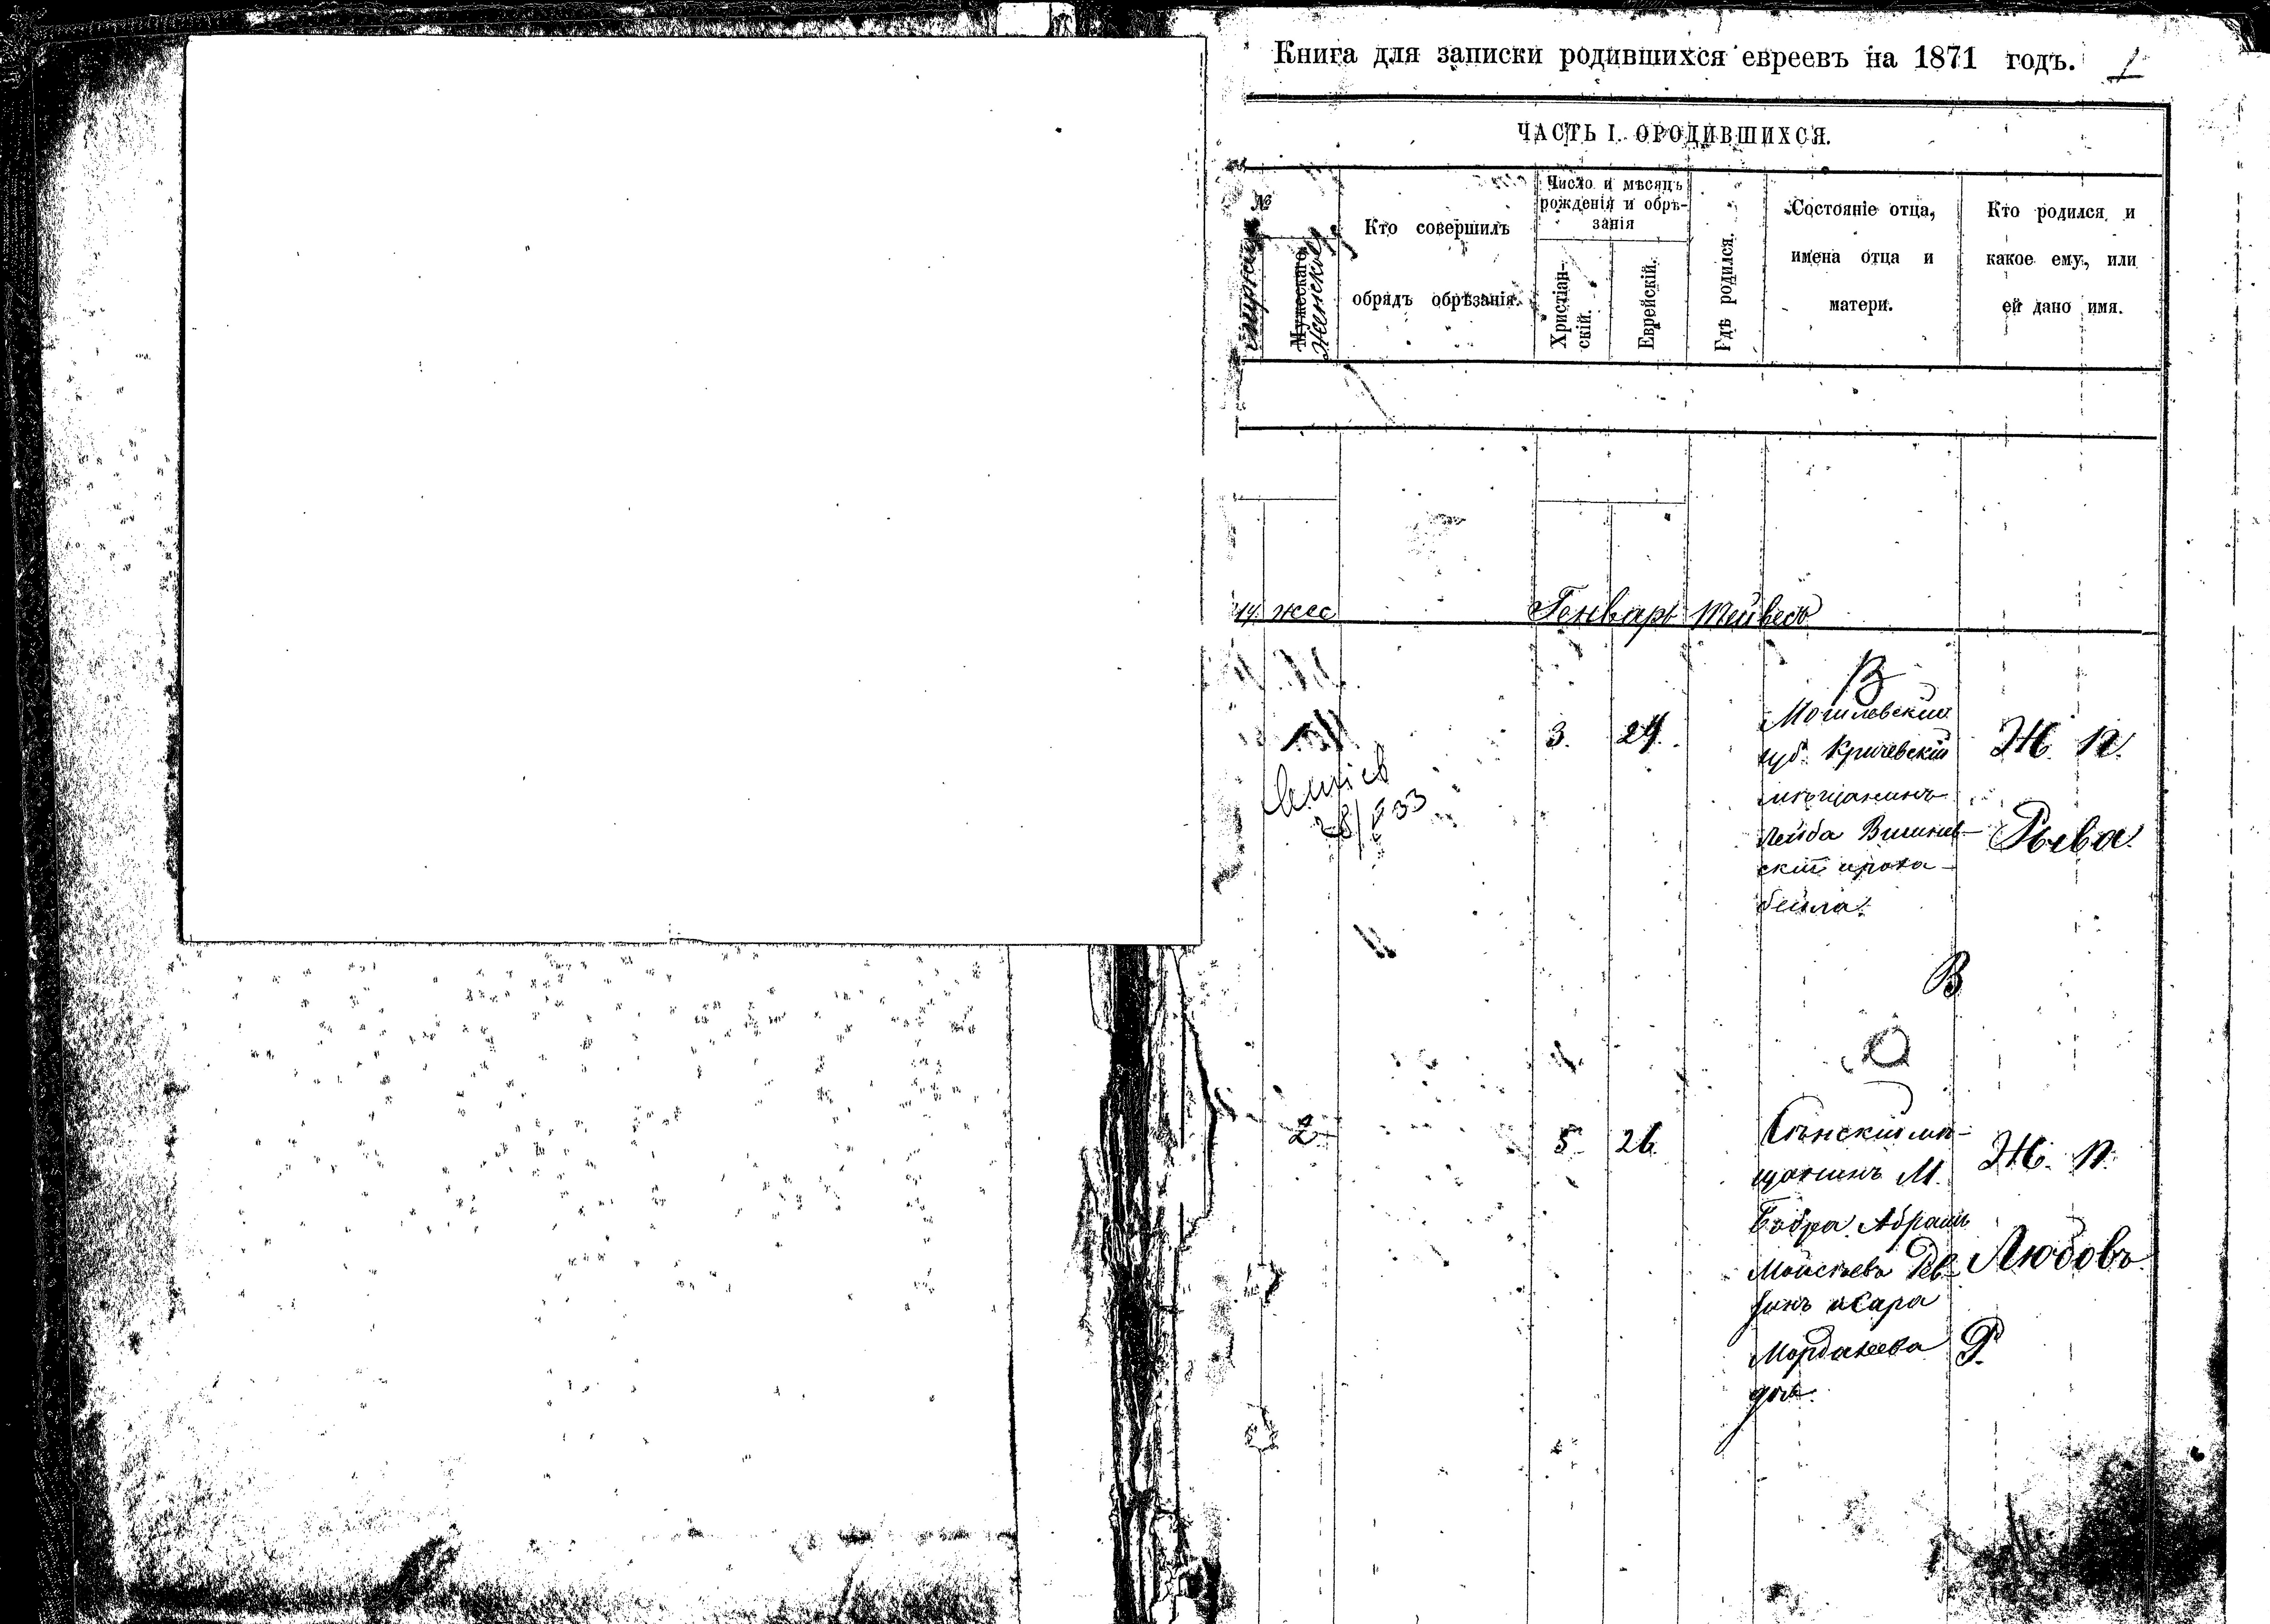 Книга для записки родившихся евреевъ на 1871 годъ. 1
ЧАСТЬ I. О РОДИВШИХСЯ.
№
Мужескаго
Женскаго
Кто совершилъ
обрядъ обрѣзанія.
Число и мѣсяцъ
рожденія и обрѣ-
занія
Христіан-
скій.
Еврейскій.
Гдѣ родился.
Состояніе отца,
имена отца и
матери.
Кто родился и
какое ему, или
ей дано имя.
м. жес Генварь Тейвесъ
В
3. 24.
Могилевскій
губ. Кричевскій
мѣщанинъ
Лейба
скій
бейла.
Ж. п.
Рыва
28/ 33
В
2 5 26
Сѣнскій мѣ-
щанинъ М.
Бобра Абрамъ
Мойсеевъ Рев-
зинъ и Сара
Мордахеева
доч.
Ж. п.
Любовь
Р.